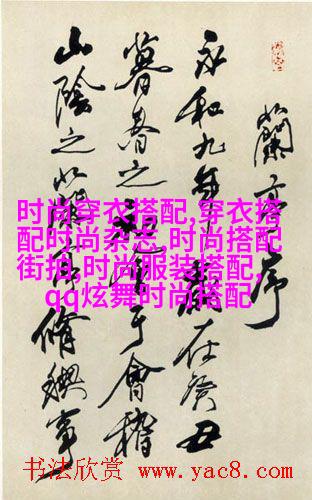 蘭亭序
永和九年在癸丑
暮春之于會稽
山陰之蘭亭脩禊事
时尚穿衣搭配,穿衣搭
配时尚杂志,时尚搭配
街拍,时尚服装搭配,
qq炫舞时尚搭配
书法欣赏 www.yac8.com